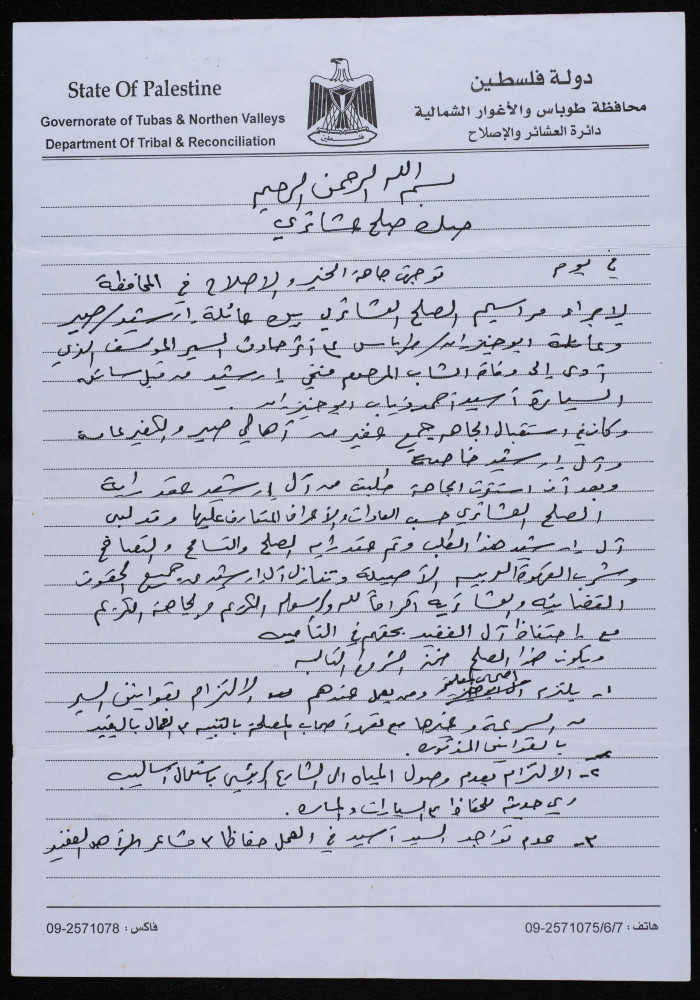 دولـة فلسطين
State Of Palestine
محافظة طوباس والأغوار الشمالية
Governorate of Tubas & Northen Valleys
دائرة العشائر والإصلاح
Department Of Tribal & Reconciliation
فلسطين
بسم الله الرحمن الرحيم
صك صلح عشائري
في يوم توجهت جاهة الخير والإصلاح في المحافظة
لإجراء مراسيم الصلح العشائري بين عائلة ارشيد / صير
وعائلة ابو خيزران / طوباس على أثر حادث السير المؤسف الذي
أدى إلى وفاة الشاب المرحوم فتحي ارشيد من قبل سائق
السيارة أسيد أحمد ذياب ابو خيزران .
وكان في استقبال الجاهه جمع غفير من أهالي صير والكفير عامة
وآل ارشيد خاصة
وبعد أن استقرت الجاهة طلبت من آل ارشيد عقد راية
الصلح العشائري حسب العادات والأعراف المتعارف عليها وقد لبى
آل ارشيد هذا الطلب وتم عقد رايه الصلح والتسامح والتصافح
وشرب القهوة العربيه الأصيلة وتنازل آل ارشيد عن جميع الحقوق
القضائية والعشائرية اكراماً لله ولرسوله الكريم وللجاهة الكريم
مع احتفاظ آل الفقيد بحقهم في التأمين
ويكون هذا الصلح ضمن الشروط التاليه
١- يلتزم اصحاب المصلحة ومن يعمل عندهم الالتزام بقوانين السير
من السرعة وغيرها مع تعهد أصحاب المصلحة بالتنبيه على العمال بالتقيد
بالقوانين المذكوره .
٢- الالتزام بعدم وصول المياه الى الشارع الرئيسي باستعمال أساليب
ري حديثة للحفاظ على السيارات والماره .
٣- عدم تواجد السيد أسيد في العمل حفاظا على مشاعر اهل الفقيد
هاتف : 09-2571075/6/7
فاكس : 09-2571078